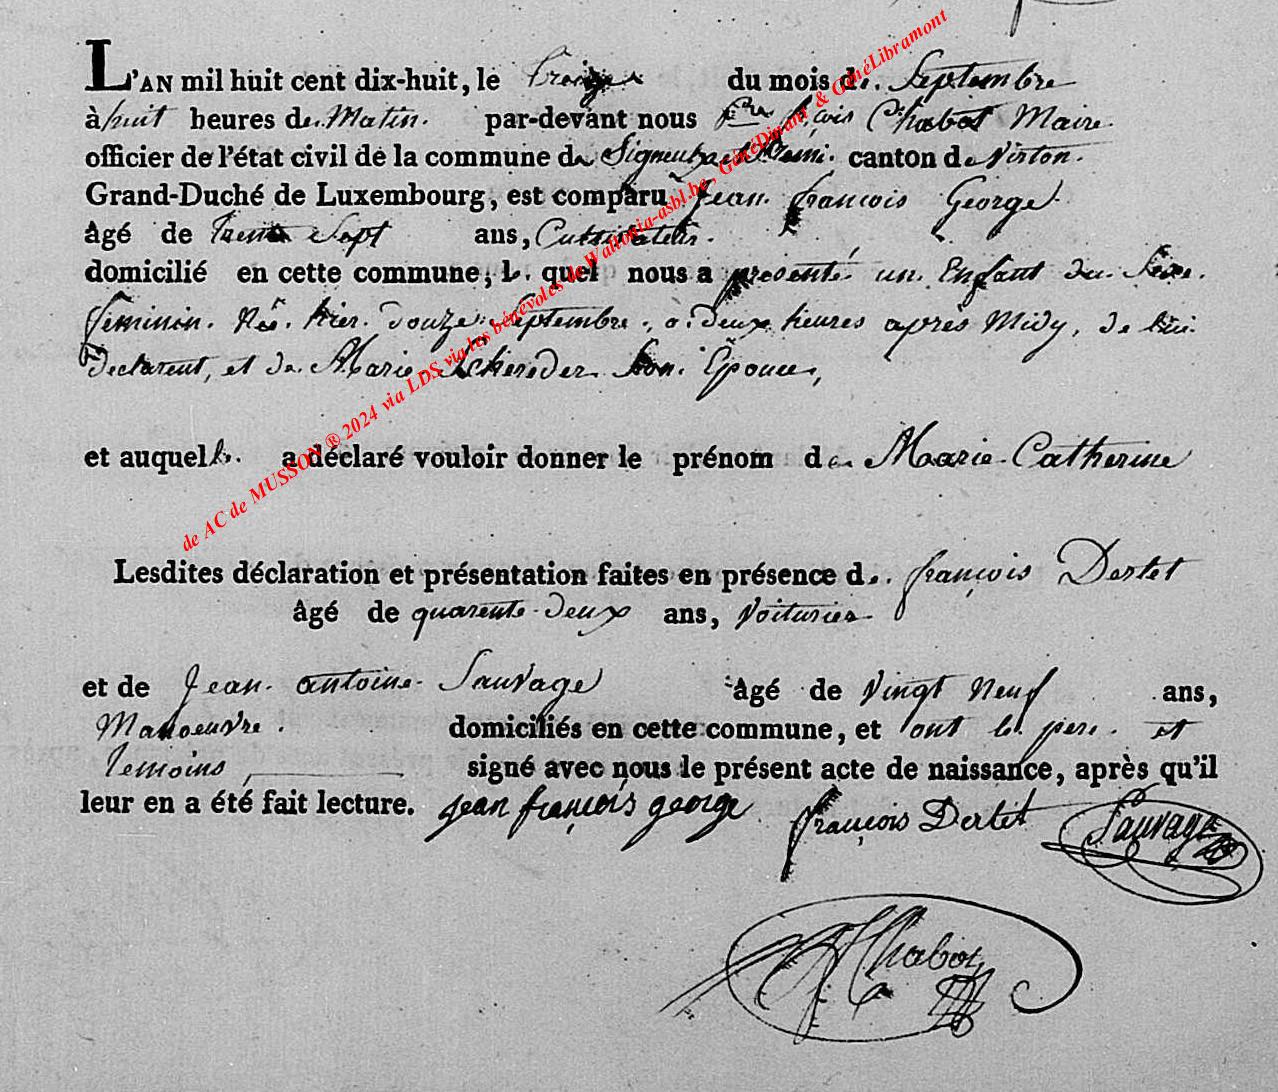 L'AN mil huit cent dix-huit, le treize du mois de Septembre
à huit heures de Matin. par-devant nous Pre fçois Chabot Maire
officier de l'état civil de la commune de Signeulx canton de Virton.
Grand-Duché de Luxembourg, est comparu Jean françois George
âgé de trente Sept ans, Cultivateur.
domicilié en cette commune, le quel nous a presenté un Enfant du Sexe
feminin. Née. hier. douze Septembre, à deux heures après Midy, de lui
declarent, et de Marie Schereder Son Epouce,
et auquel le a déclaré vouloir donner le prénom de Marie Catherine
Lesdites déclaration et présentation faites en présence de françois Dertet
âgé de quarente deux ans, Voiturier
et de Jean antoine Sauvage âgé de Vingt Neuf ans,
Manoeuvre. domiciliés en cette commune, et ont le pere et
temoins signé avec nous le présent acte de naissance, après qu'il
leur en a été fait lecture. jean françois george françois Dertet Sauvage
Chabot
de AC de MUSSON ® 2024 via LDS via les bénévoles de Wallonia-asbl.be, GénéDinant & GénéLibramont